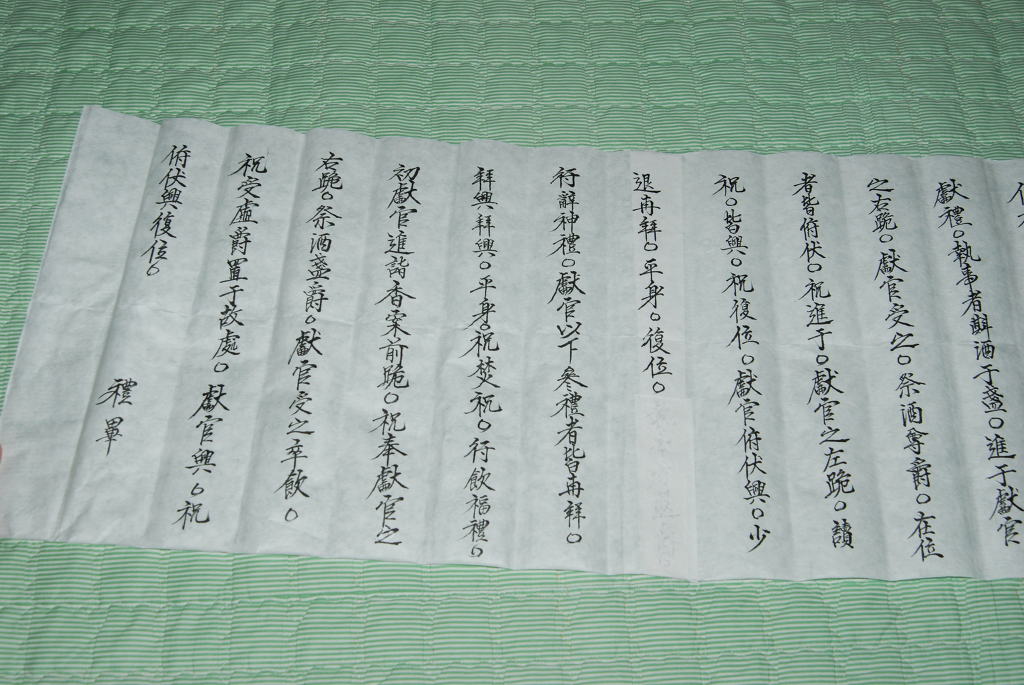 獻禮。執事者斟酒于盞。進于獻官
之右跪。獻官受之。祭酒奠爵。在位
者皆俯伏。祝進于。獻官之左跪。讀
祝。皆興。祝復位。獻官俯伏興。少
退再拜。平身。復位。
行辭神禮。獻官以下參禮者皆再拜。
拜興拜興。平身。祝焚祝。行飮福禮。
初獻官進詣香案前跪。祝奉獻官之
右跪。祭酒盞爵。獻官受之卒飮。
祝受虛爵置于故處。獻官興。祝
俯伏興復位。
禮畢